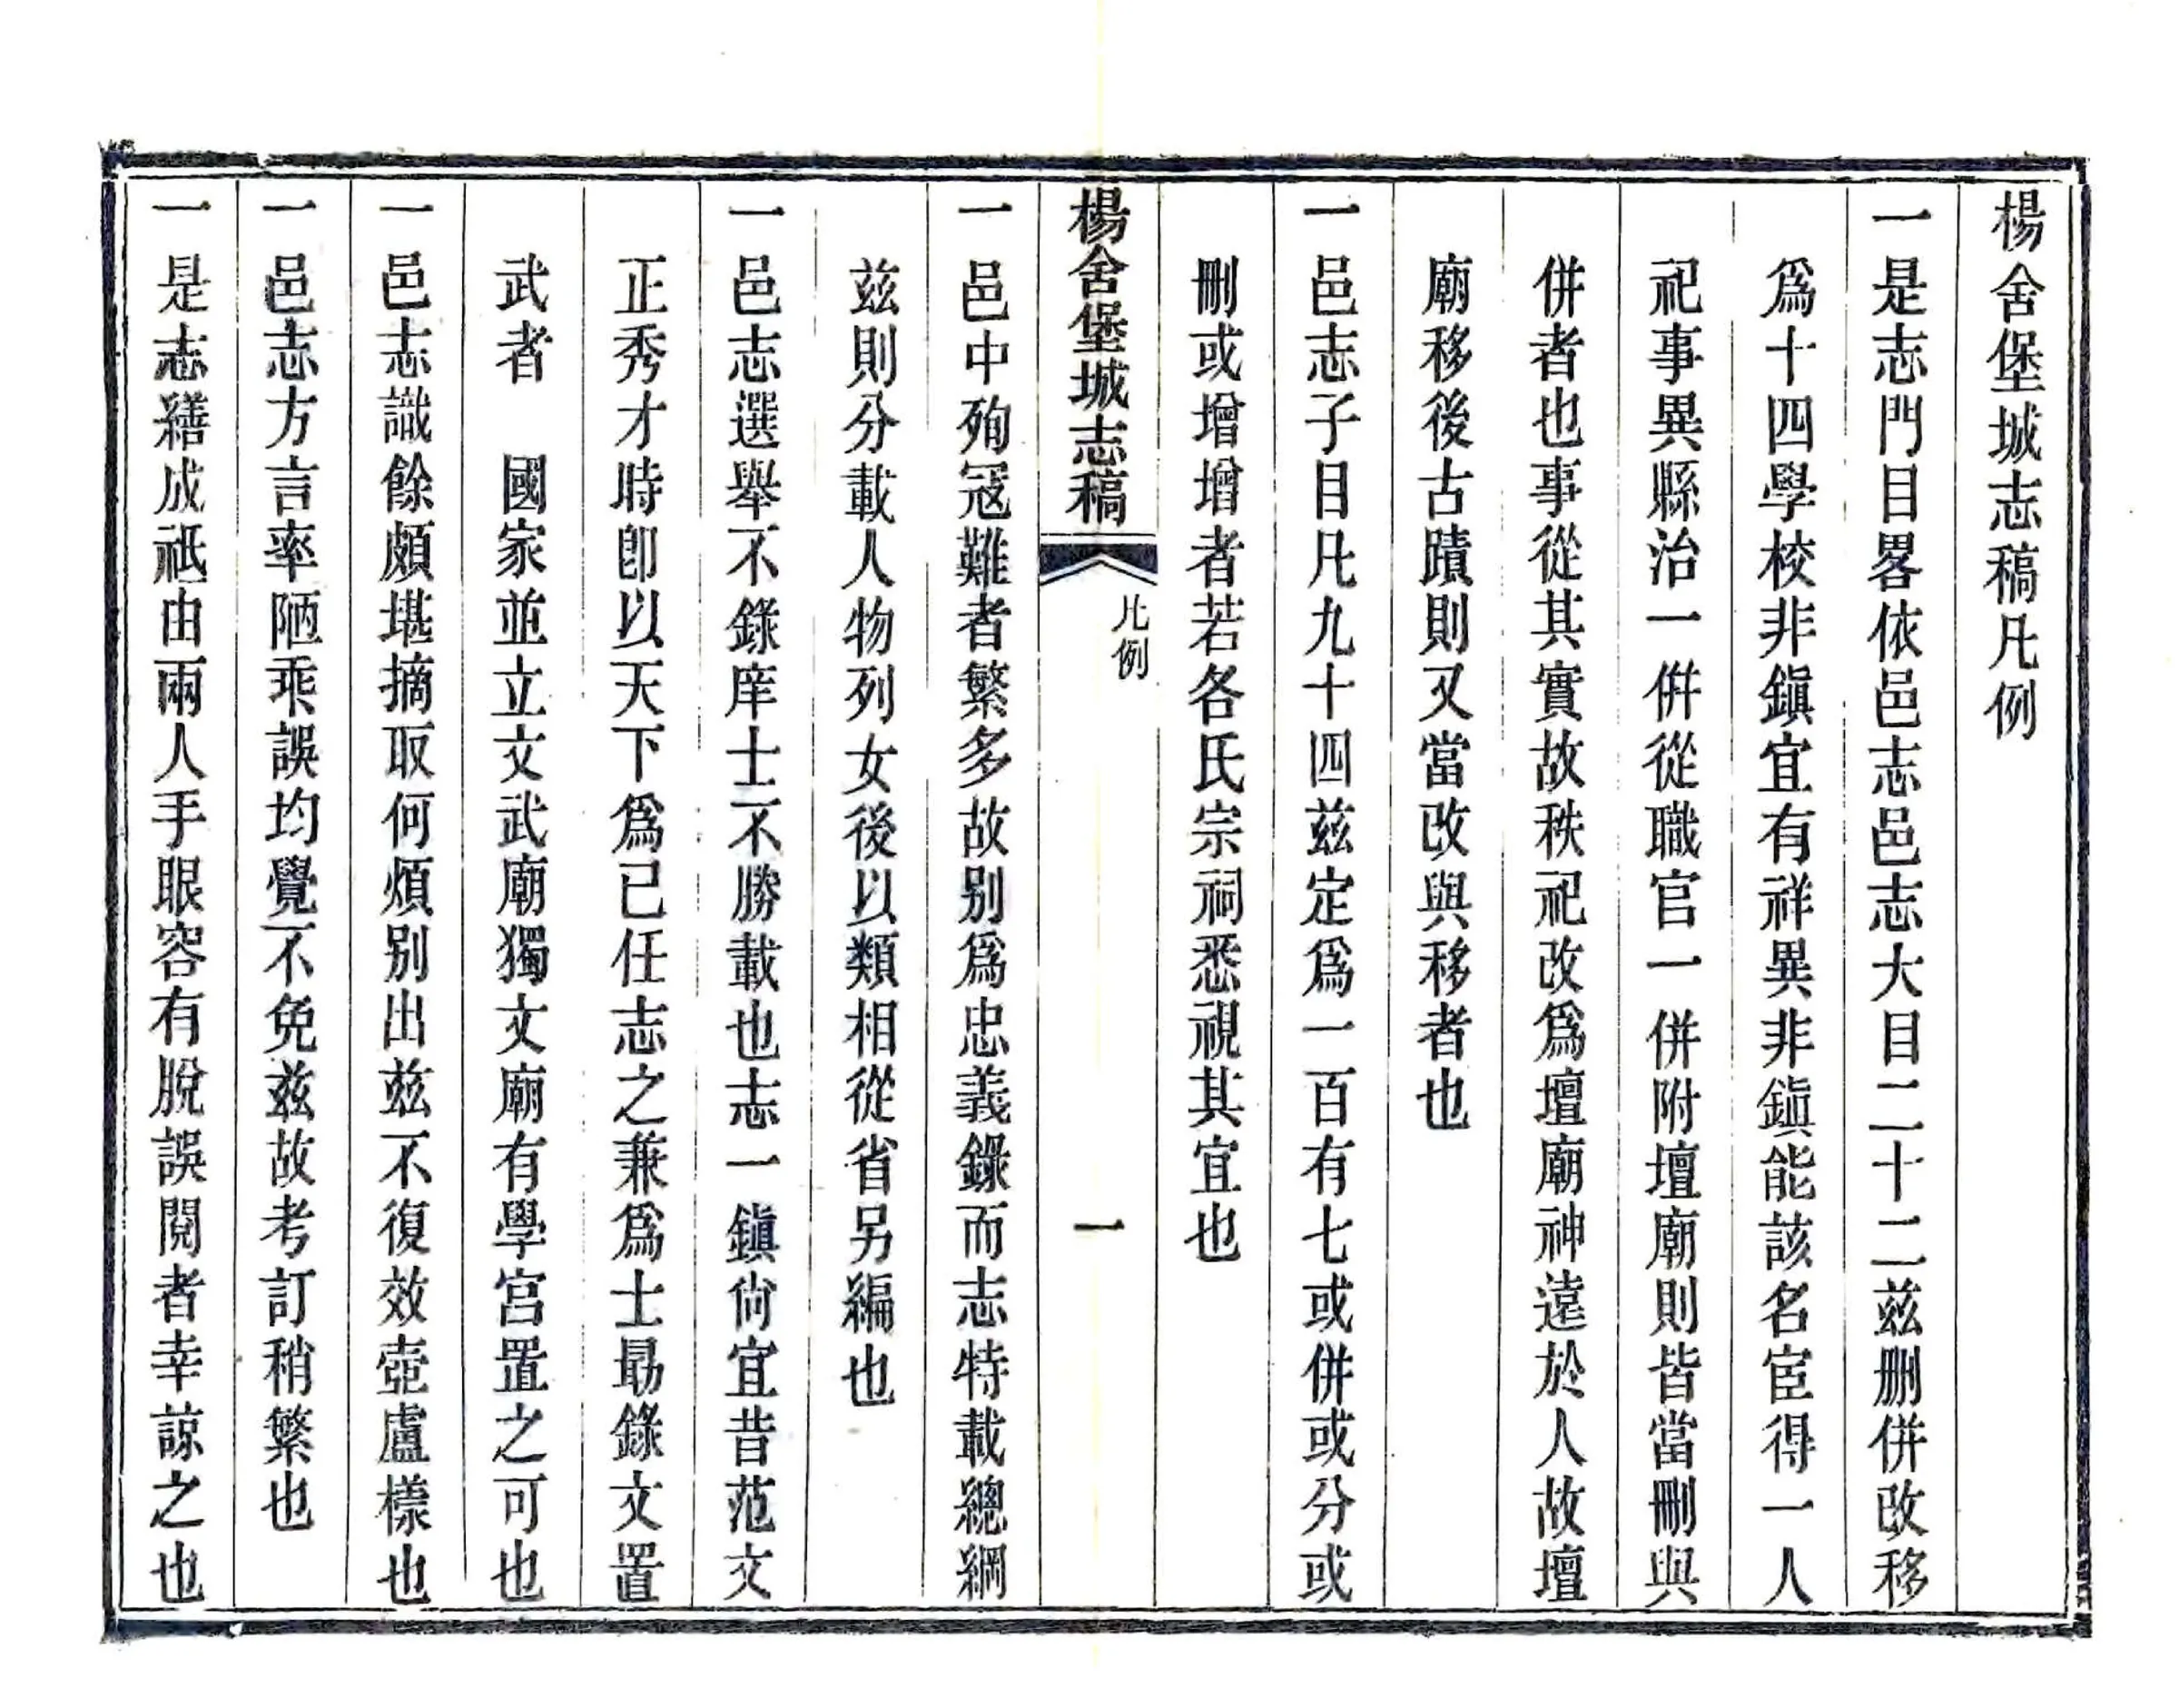 楊舍堡城志稿凡例
一是志門目畧依邑志邑志大目二十二兹删併改移
爲十四學校非鎭宜有祥異非鎭能該名宦得一人
祀事異縣治一併從職官一併附壇廟則皆當刪與
併者也事從其實故秩祀改爲壇廟神遠於人故壇
廟移後古蹟則又當改與移者也
一邑志子目凡九十四兹定爲一百有七或併或分或
刪或增增者若各氏宗祠悉視其宜也
楊舍堡城志稿
凡例
一
一邑中殉寇難者繁多故别爲忠義錄而志特載總綱
兹則分載人物列女後以類相從省另編也
一邑志選舉不錄庠士不勝載也志一鎭尙宜昔范文
正秀才時卽以天下爲已任志之兼爲士勗錄文置
武者 國家並立文武廟獨文廟有學宮置之可也
一邑志識餘頗堪摘取何煩别出兹不復效壺盧樣也
一邑志方言率陋乖誤均覺不免兹故考訂稍繁也
一是志繕成祗由兩人手眼容有脫誤閱者幸諒之也